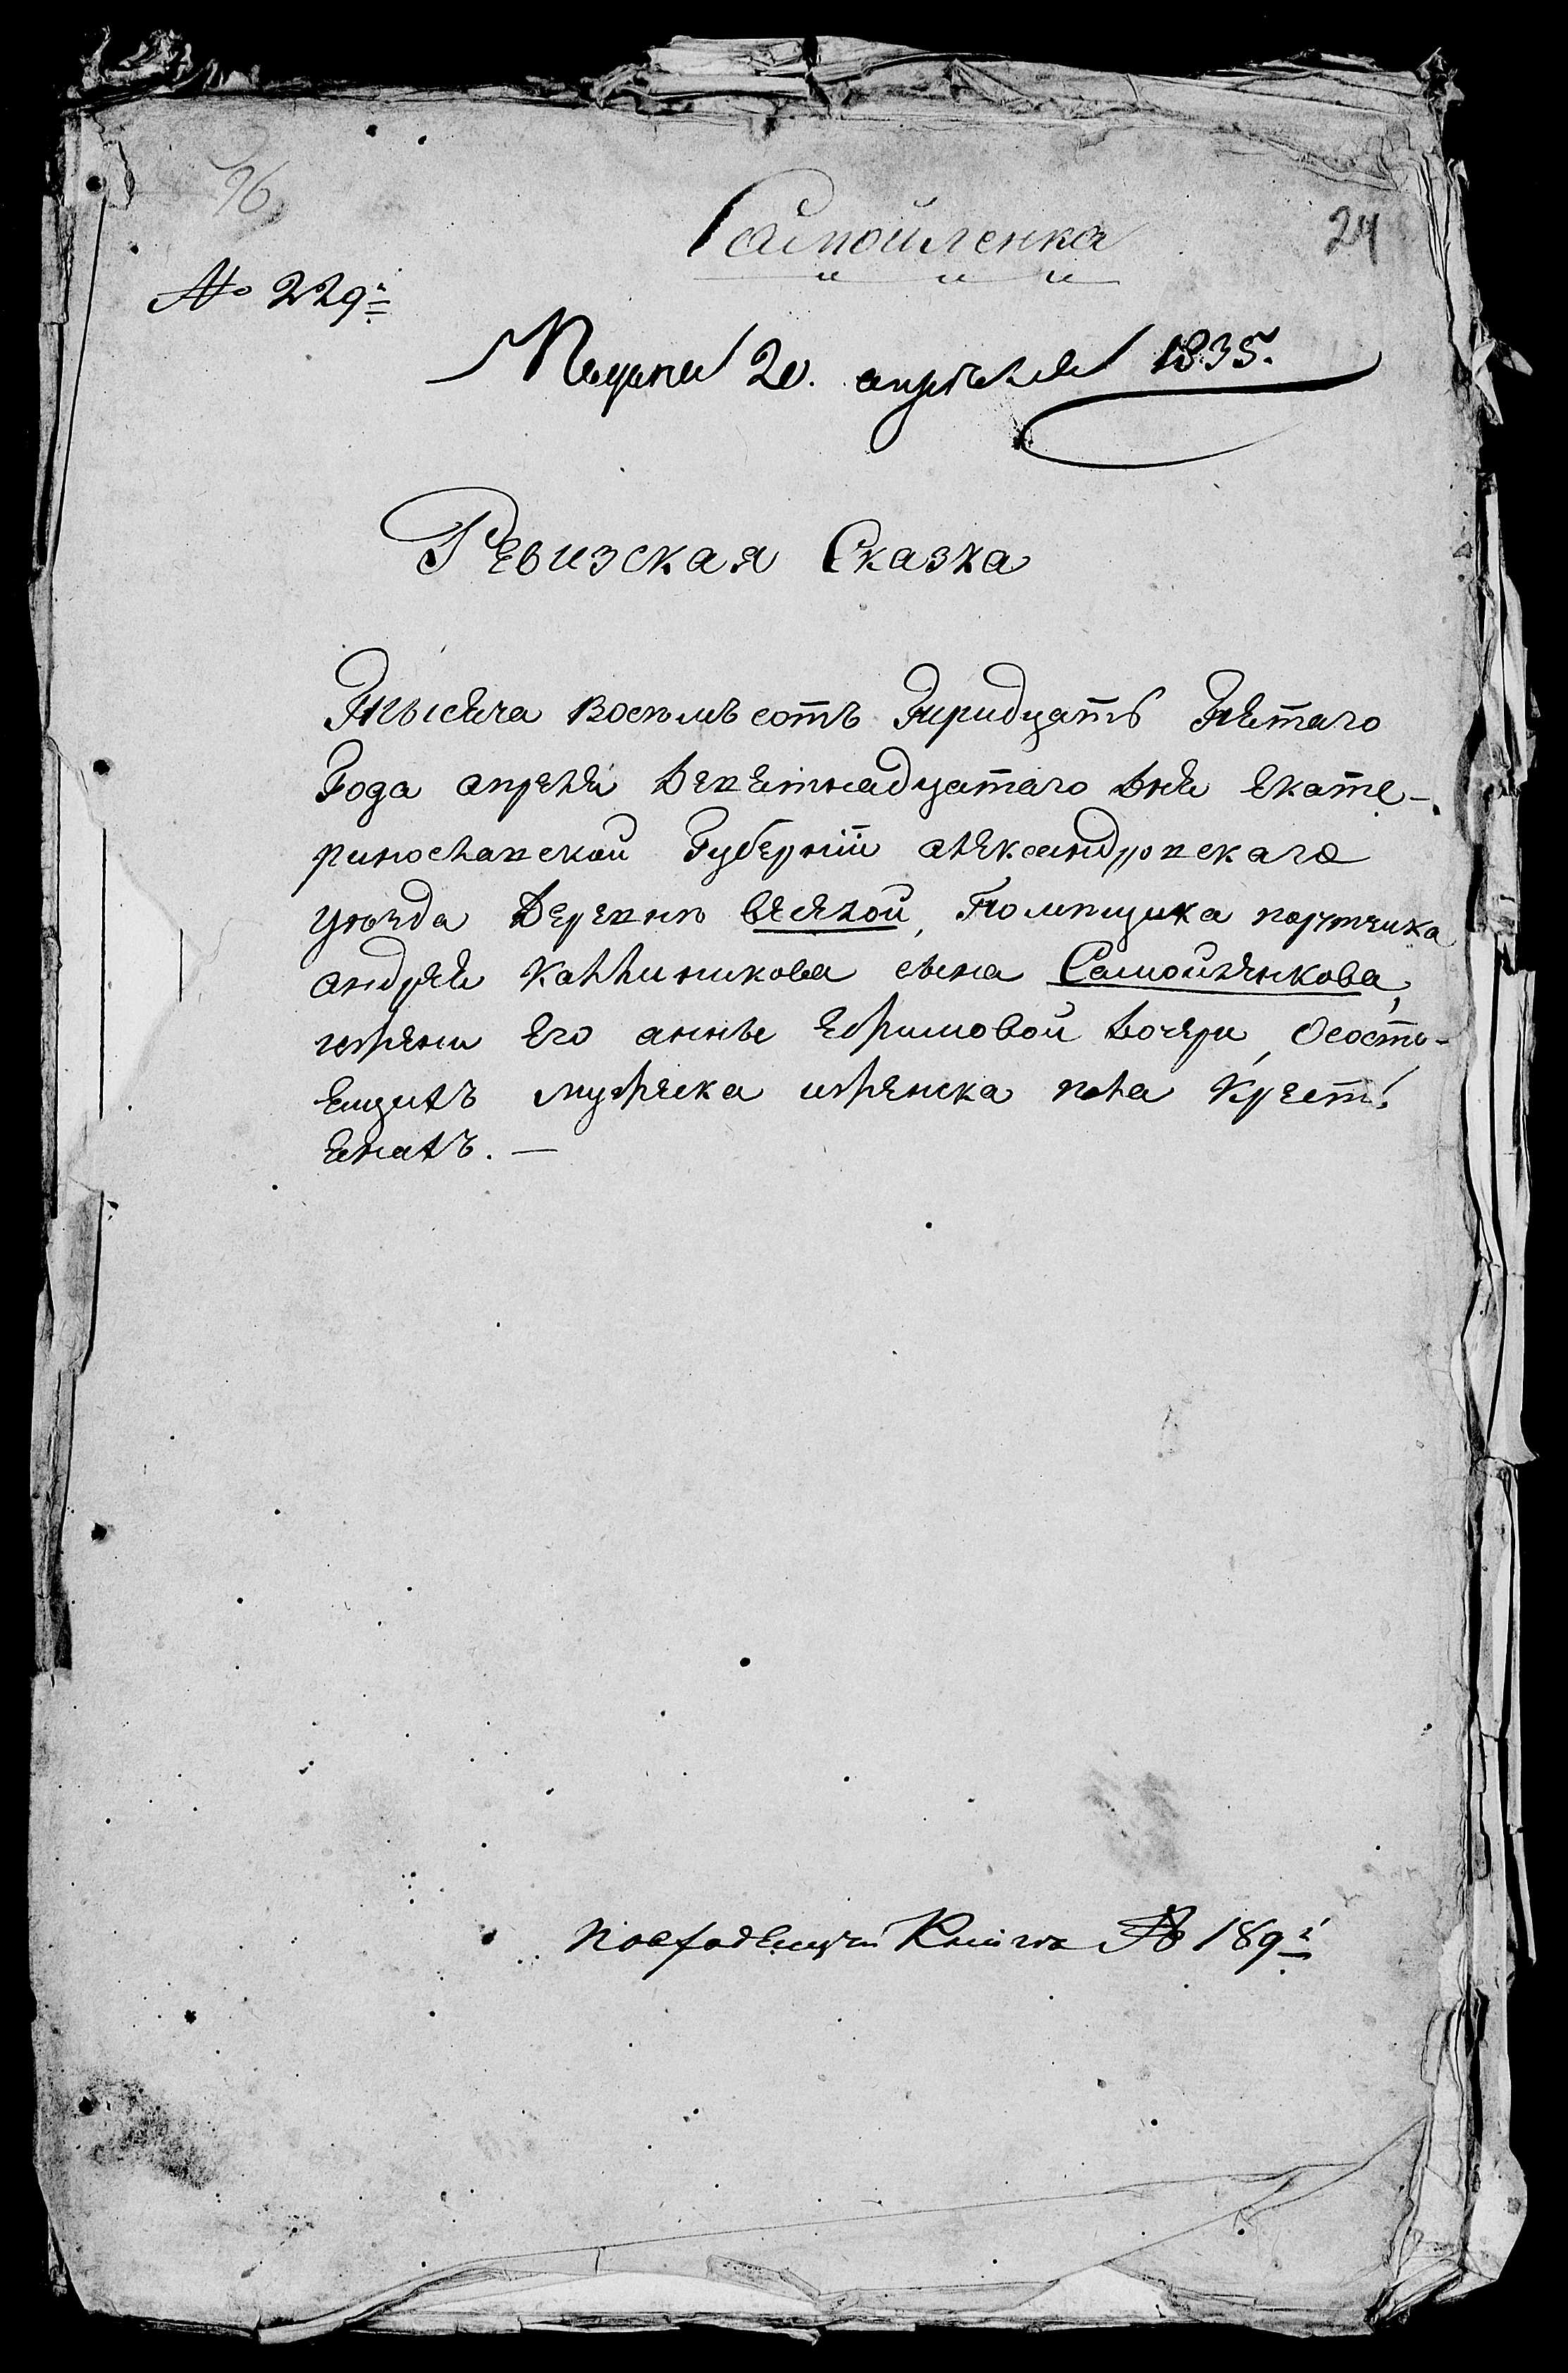 96
Самойленка
24
№ 229й
Подана 20. апреля 1835.
Ревизская Сказка
Тысяча восемьсотъ Тридцать Пятаго
Года апреля Девятнадцатаго дня Екате-
ринославской Губернiи александровскаго
уѣзда Деревни Вялой, Помѣщика порутчика
андрея Каллиникова сына Самойленкова,
жены Его анны Ефимовой Дочери, Ососто-
ящихъ мужеска иженска пола Кресть
янахъ. —
Книга № 189й